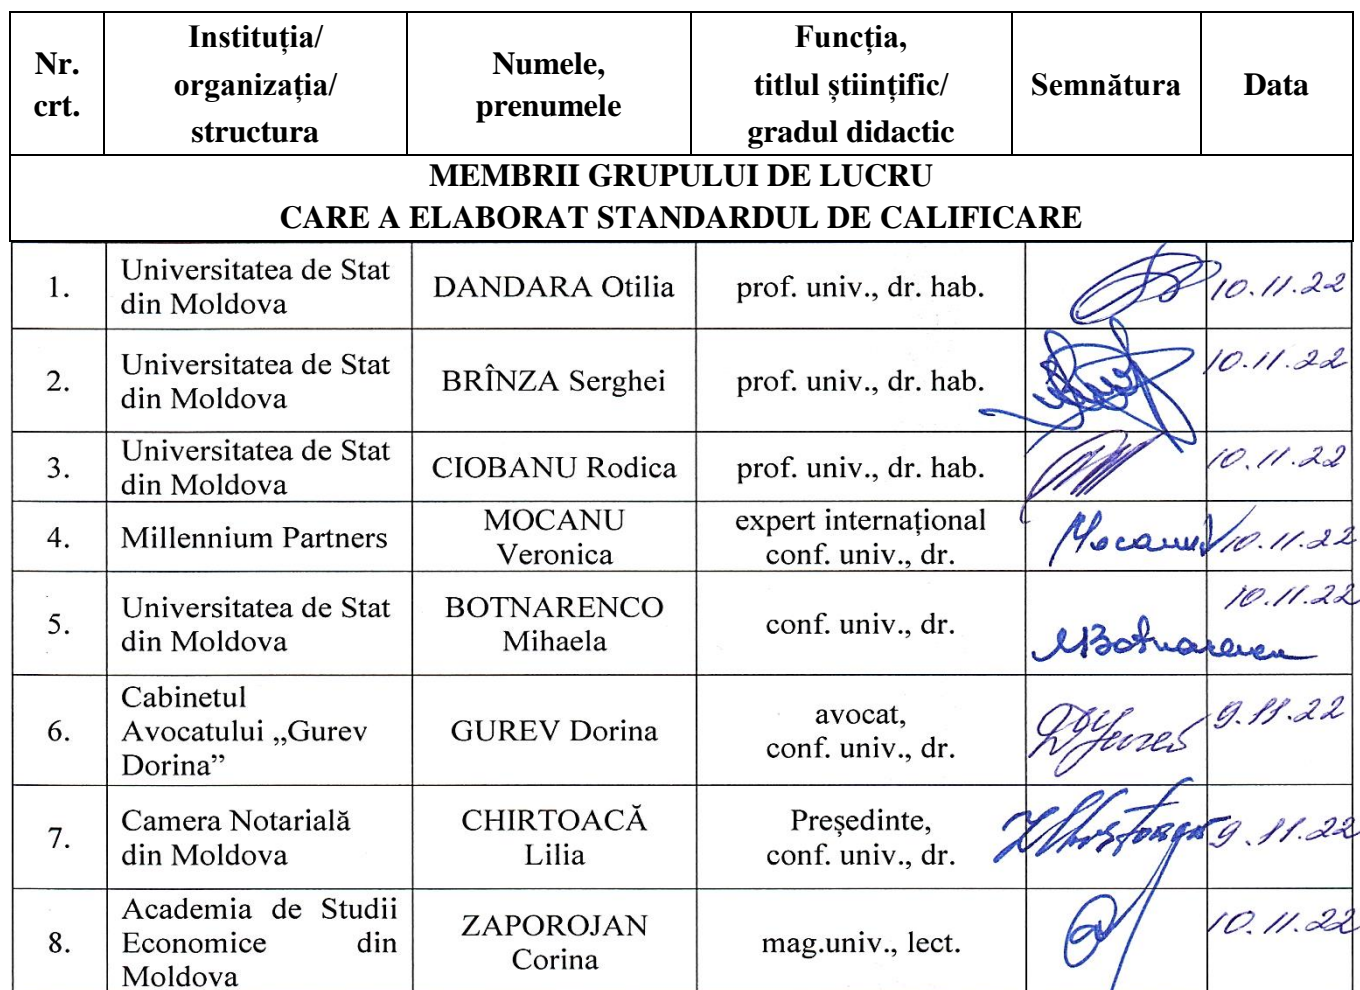 Nr.
crt.
Instituția/
organizația/
structura
Numele,
prenumele
Funcția,
titlul științific/
gradul didactic
Semnătura
Data
MEMBRII GRUPULUI DE LUCRU
CARE A ELABORAT STANDARDUL DE CALIFICARE
1.
Universitatea de Stat
din Moldova
DANDARA Otilia
prof. univ., dr. hab.
10.11.22
2.
Universitatea de Stat
din Moldova
BRÎNZA Serghei
prof. univ., dr. hab.
10.11.22
3.
Universitatea de Stat
din Moldova
CIOBANU Rodica
prof. univ., dr. hab.
10.11.22
4.
Millennium Partners
MOCANU
Veronica
expert internațional
conf. univ., dr.
Mocanu
10.11.22
5.
Universitatea de Stat
din Moldova
BOTNARENCO
Mihaela
conf. univ., dr.
MBotnarenco
10.11.22
6.
Cabinetul
Avocatului „Gurev
Dorina”
GUREV Dorina
avocat,
conf. univ., dr.
9.11.22
7.
Camera Notarială
din Moldova
CHIRTOACĂ
Lilia
Președinte,
conf. univ., dr.
9.11.22
8.
Academia de Studii
Economice din
Moldova
ZAPOROJAN
Corina
mag.univ., lect.
10.11.22